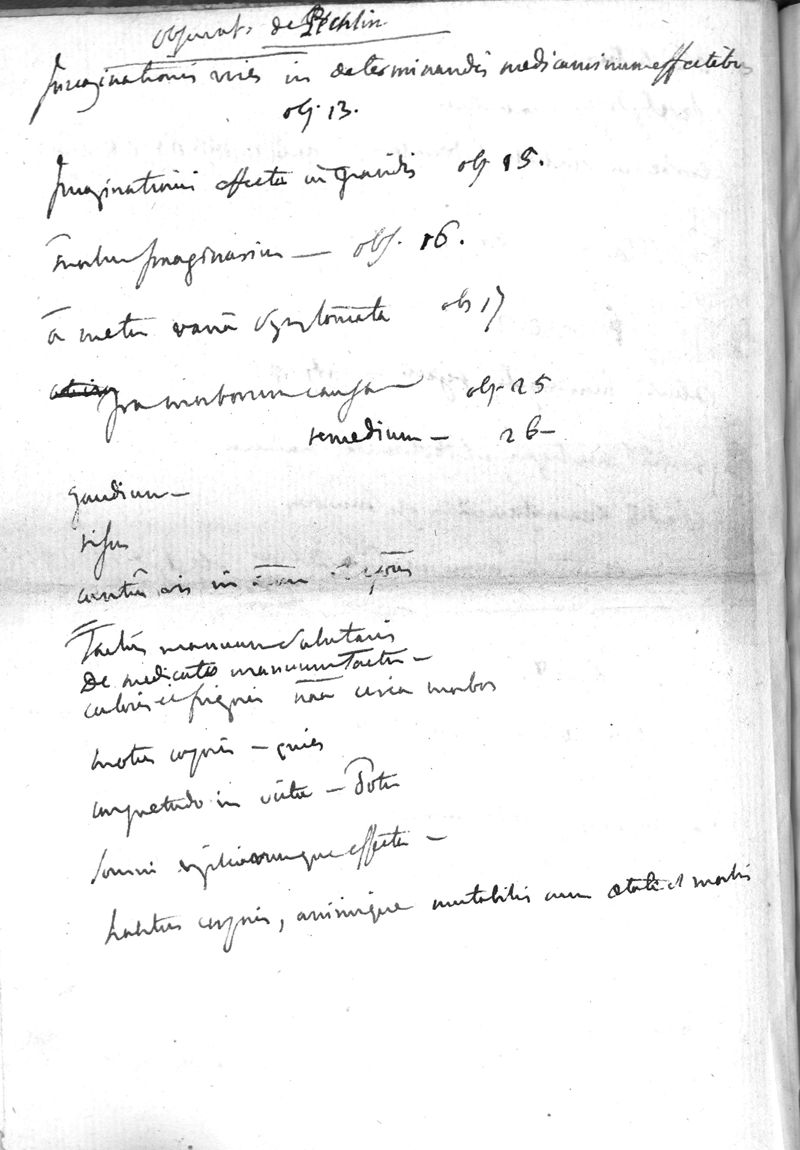 observat. de Pechlin
Imaginationis vires in determinandis medicaminum effectibus
obs. 13.
Imaginationis effectus in gravidis obs 15.
morbus Imaginarius — obs. 16.
à metu varia symptomata obs 17
Ira morborum causa obs. 25
remedium — 26 —
gaudium —
risus
in
Tactus manuum salutaris
De medicato manuum Tactu —
caloris et frigoris circa morbos
motus corporis — quies
in victu — Potu
somni vigiliarumque effectus —
habitus corporis, animique mutabilis cum ætate et morbis